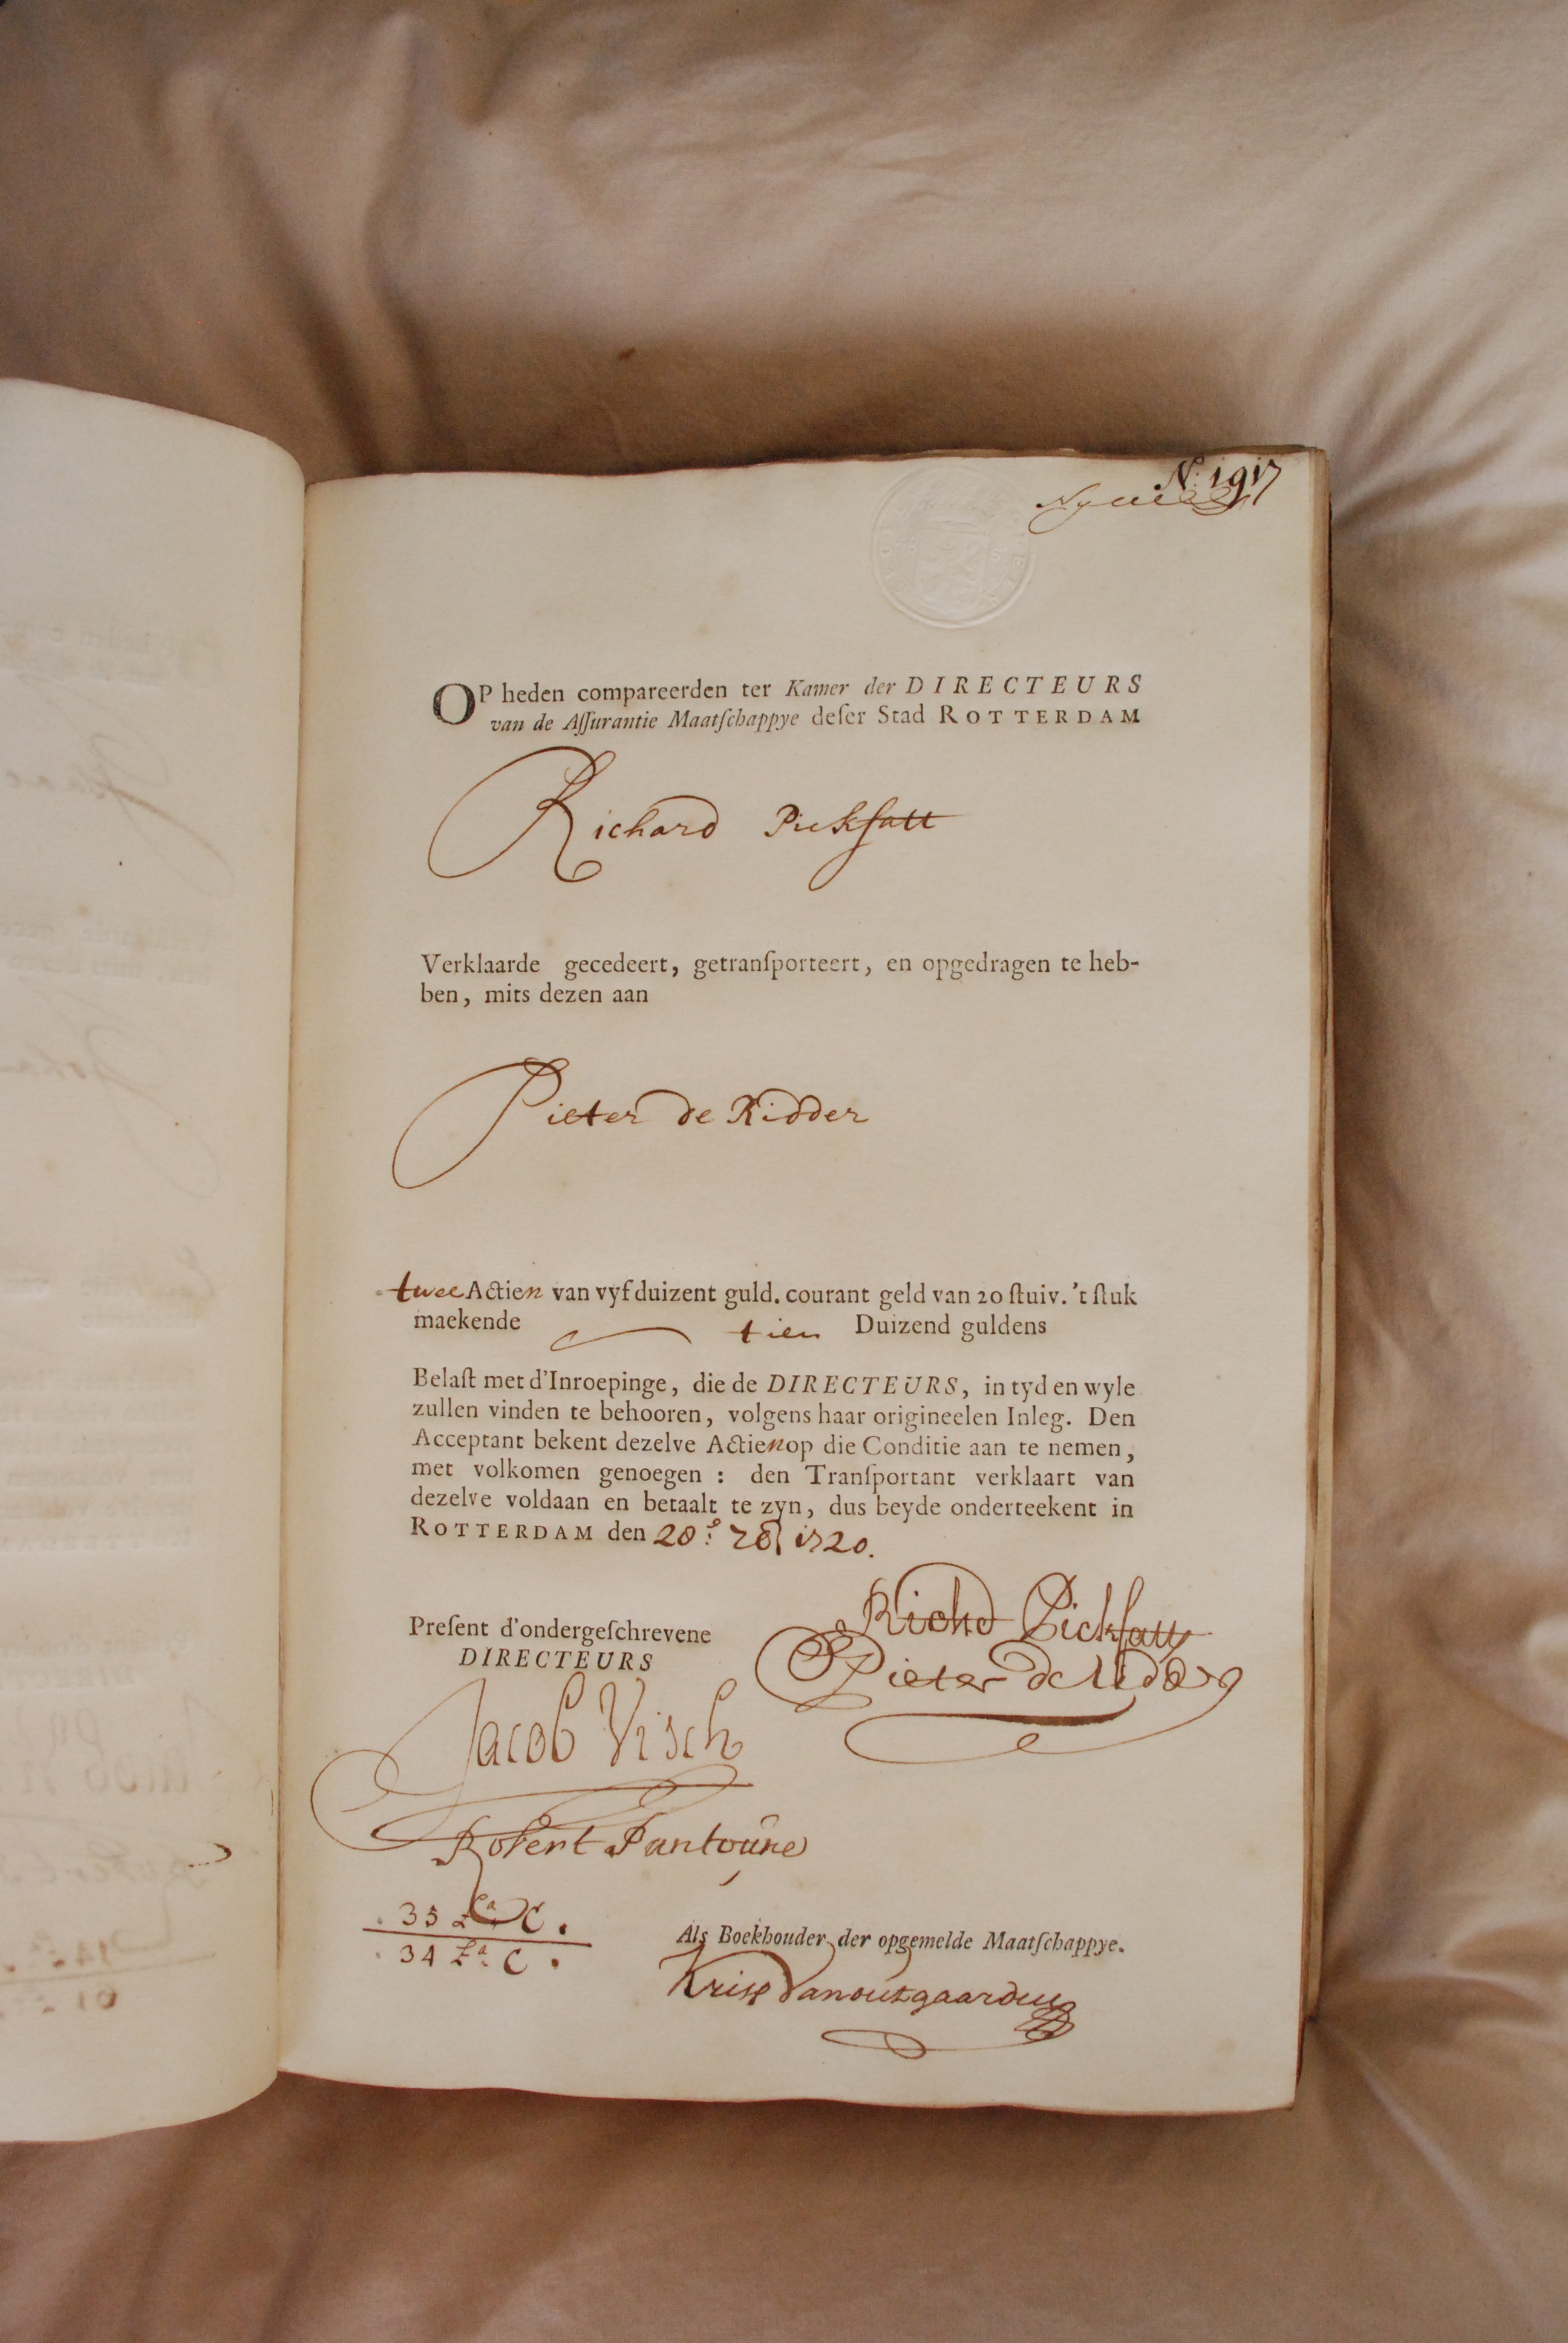 N: 1917
OP heden compareerden ter Kamer der DIRECTEURS
van de Aſſurantie Maatſchappye deſer Stad ROTTERDAM
Richard Pickfatt
Verklaarde gecedeert, getranſporteert, en opgedragen te heb-
ben, mits dezen aan
Pieter de Ridder
twee Actien van vyf duizent guld. courant geld van 20 ſtuiv. 't ſtuk
maekende tien Duizend guldens
Belaſt met d'Inroepinge, die de DIRECTEURS, in tyd en wyle
zullen vinden te behooren, volgens haar origineelen Inleg. Den
Acceptant bekent dezelve Actien op die Conditie aan te nemen,
met volkomen genoegen : den Tranſportant verklaart van
dezelve voldaan en betaalt te zyn, dus beyde onderteekent in
ROTTERDAM den 28e 1720.
Richd Pickfatt
Preſent d'ondergeſchrevene
DIRECTEURS
Pieter de Ridder
Jacob Visch
Robert Pantoune
35 La C.
34 La C.
Als Boekhouder der opgemelde Maatſchappye.